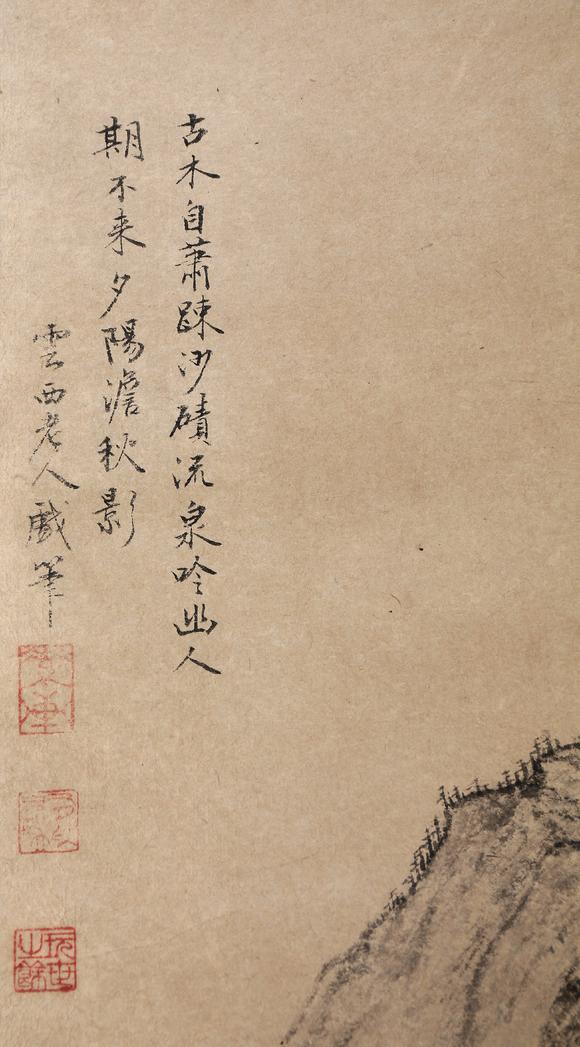 古木自蕭踈沙磧流泉吟幽人
期不来夕陽澹秋影
雲西老人戲筆
玩世之餘